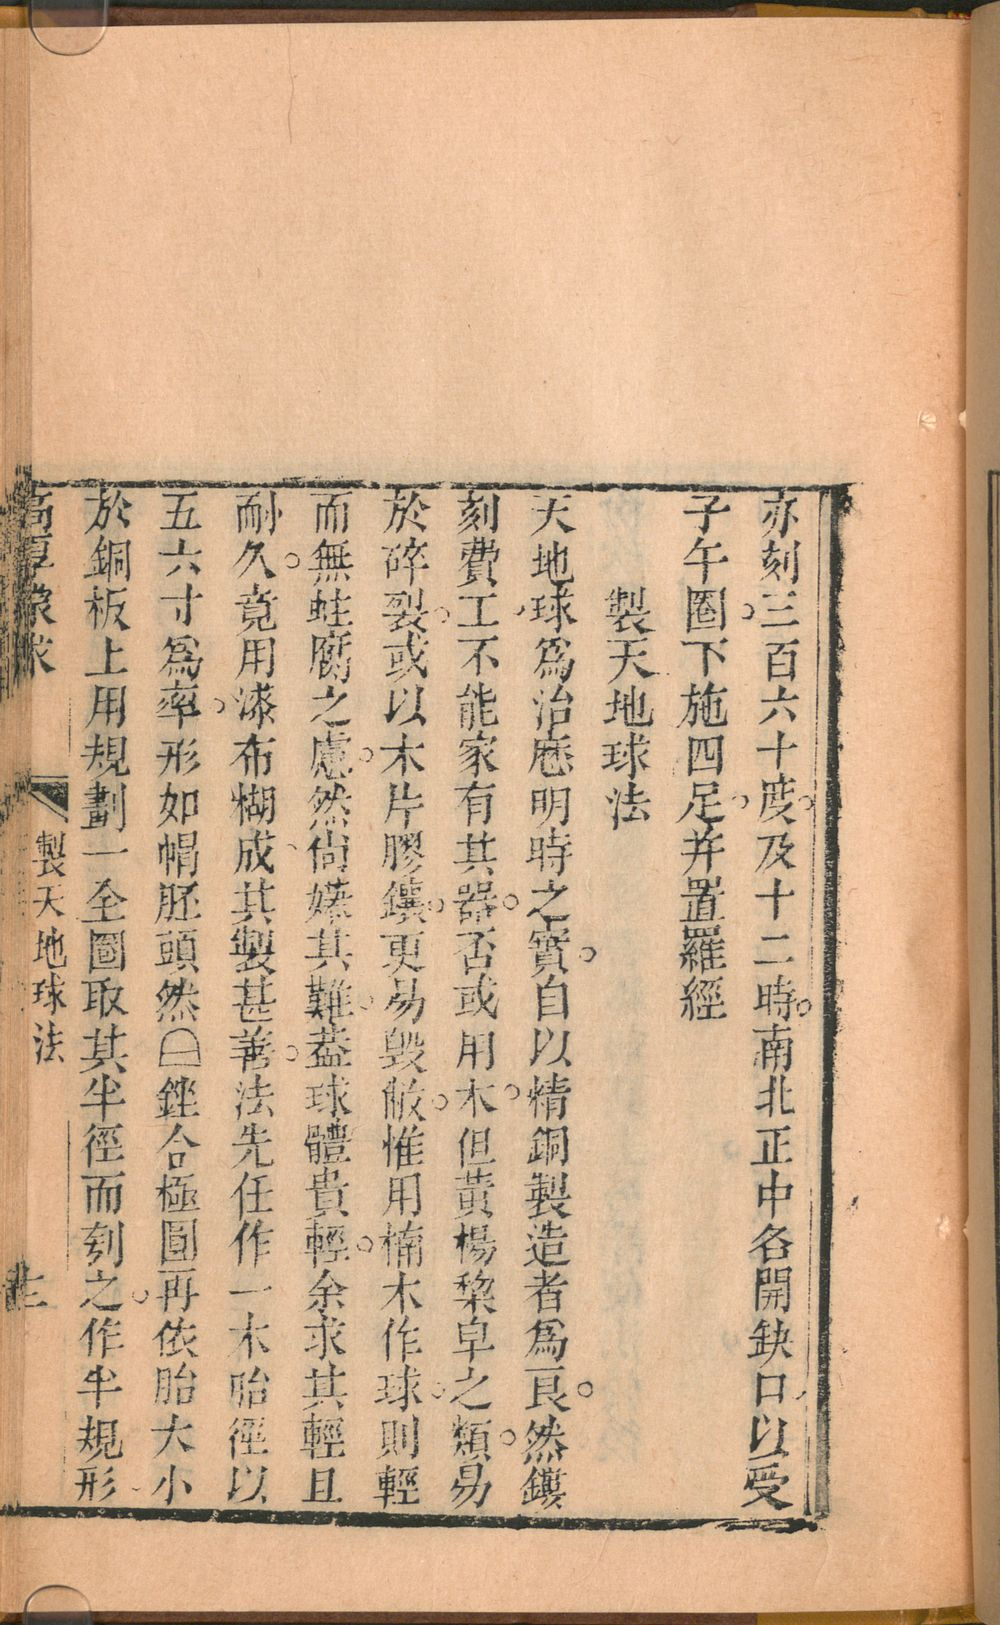 亦刻三百六十度及十二時南北正中各開缺口以受
子午圈下施四足并置羅經
製天地球法
天地球爲治厯明時之寳自以精銅製造者爲良然鑲
刻費工不能家有其器否或用木但黃楊棃皁之類易
於碎裂或以木片膠鑲更易毀敝惟用楠木作球則輕
而無蛀腐之慮然尙嫌其難葢球體貴輕余求其輕且
耐久竟用漆布糊成其製甚善法先任作一木胎徑以
五六寸爲率形如帽胚頭然銼合極圓再依胎大小
於銅板上用規劃一全圈取其半徑而刳之作半規形
高厚蒙求
製天地球法